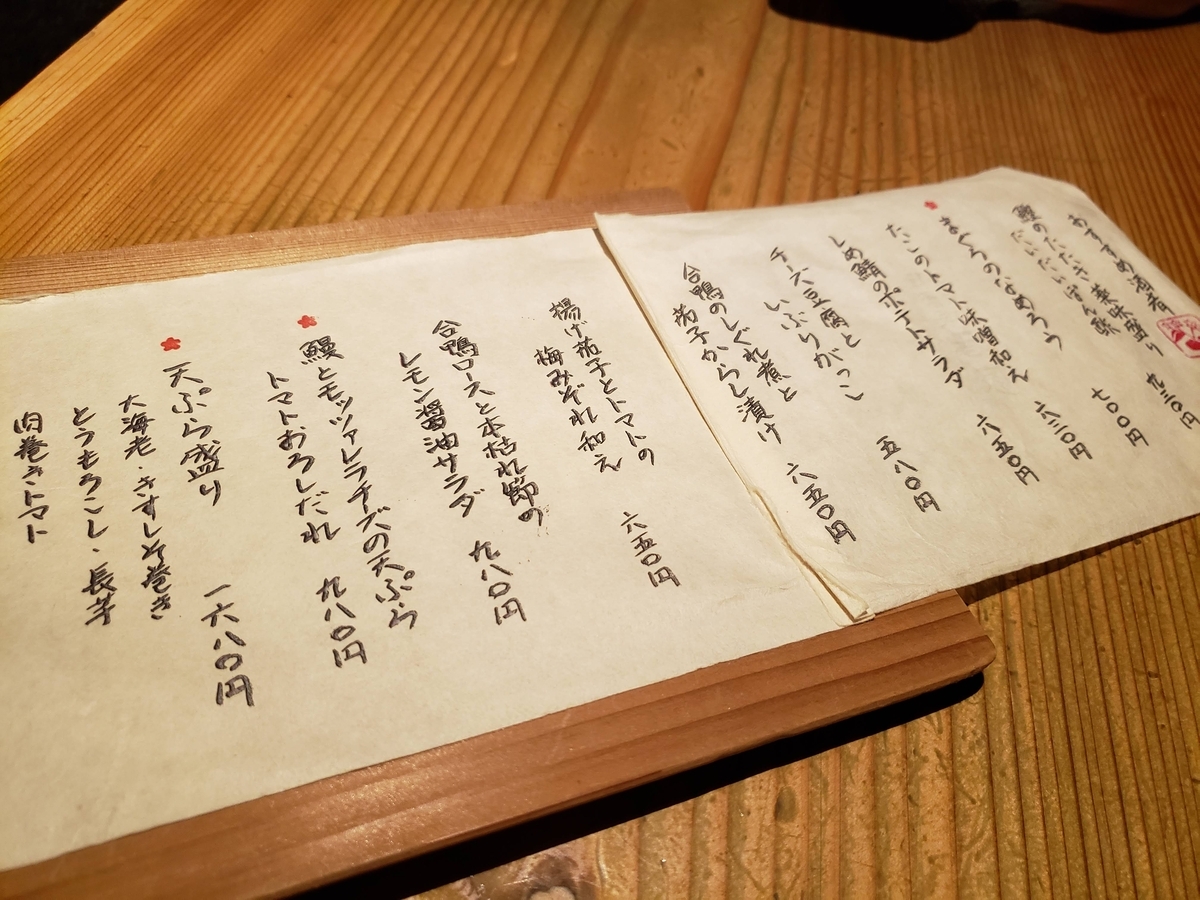 おすすめ酒肴
鰹のたたき薬味盛り
だいだいぽん酢 九三〇円
まぐろのなめろう 七〇〇円
たこのトマト味噌和え 六三〇円
しめ鯖のポテトサラダ 六五〇円
チーズ豆腐と
いぶりがっこ 五八〇円
合鴨のしぐれ煮と
茄子からし漬け 六五〇円
揚げ茄子とトマトの
梅みぞれ和え 六五〇円
合鴨ロースと本枯れ節の
レモン醤油サラダ 九八〇円
鰻とモッツァレラチーズの天ぷら
トマトおろしだれ 九八〇円
天ぷら盛り 一六八〇円
大海老・きすしそ巻き
とうもろこし・長芋
肉巻きトマト